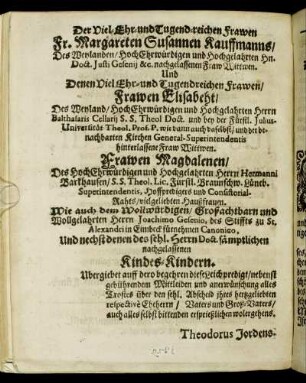 Der Viel-Ehr-und Tugend-reichen Frawen
Fr. Margareten Susannen Kauffmanns/
Des Weylanden / HochEhrwürdigen und Hochgelahrten Hn.
Doct. Justi Gesenij &c. nachgelassenen Fraw Wittwen.
Und
Denen Viel Ehr-und Tugendreichen Frawen/
Frawen Elisabeht/
Des Weyland / HochEhrwürdigen und Hochgelahrten Herrn
Balthasaris Cellarij S. S. Theol Doct. und bey der Fürstl. Julius-
Universität Theol. Prof. P. wie dann auch daselbst / und der be-
nachbarten Kirchen General-Superintendentis
hinterlassene Fraw Wittwen.
Frawen Magdalenen/
Des HochEhrwürdigen und Hochgelahrten Herrn Hermanni
Barkhausen / S. S. Theol. Lic. Fürstl. Braunschw. Lüneb.
Superintendentis, Hoffpredigers und Consistorial-
Rahts / vielgeliebten Hauß frauen.
Wie auch dem WolEhrwürdigen, Großachtbarn und
Wollgelahrten Herrn Joachimo Gesenio, des Stiffts zu St.
Alexandri in Eimbeck fürnehmen Canonico,
Und nechst denen des sehl. Herrn Doct. sämptlichen
nachgelassenen
Kindes-Kindern.
Ubergiebet auff dero begehren diese Leichpredigt / nebenst
gebührendem Mittleiden und anerwünschung alles
Trostes über den sehl. Abscheid ihres hertzgeliebten
respectivè Eheherrn / Vaters und Groß-Vaters/
auch alles selbst bittenden ersprießlichen wolergehens.
Theodorus Jordens.